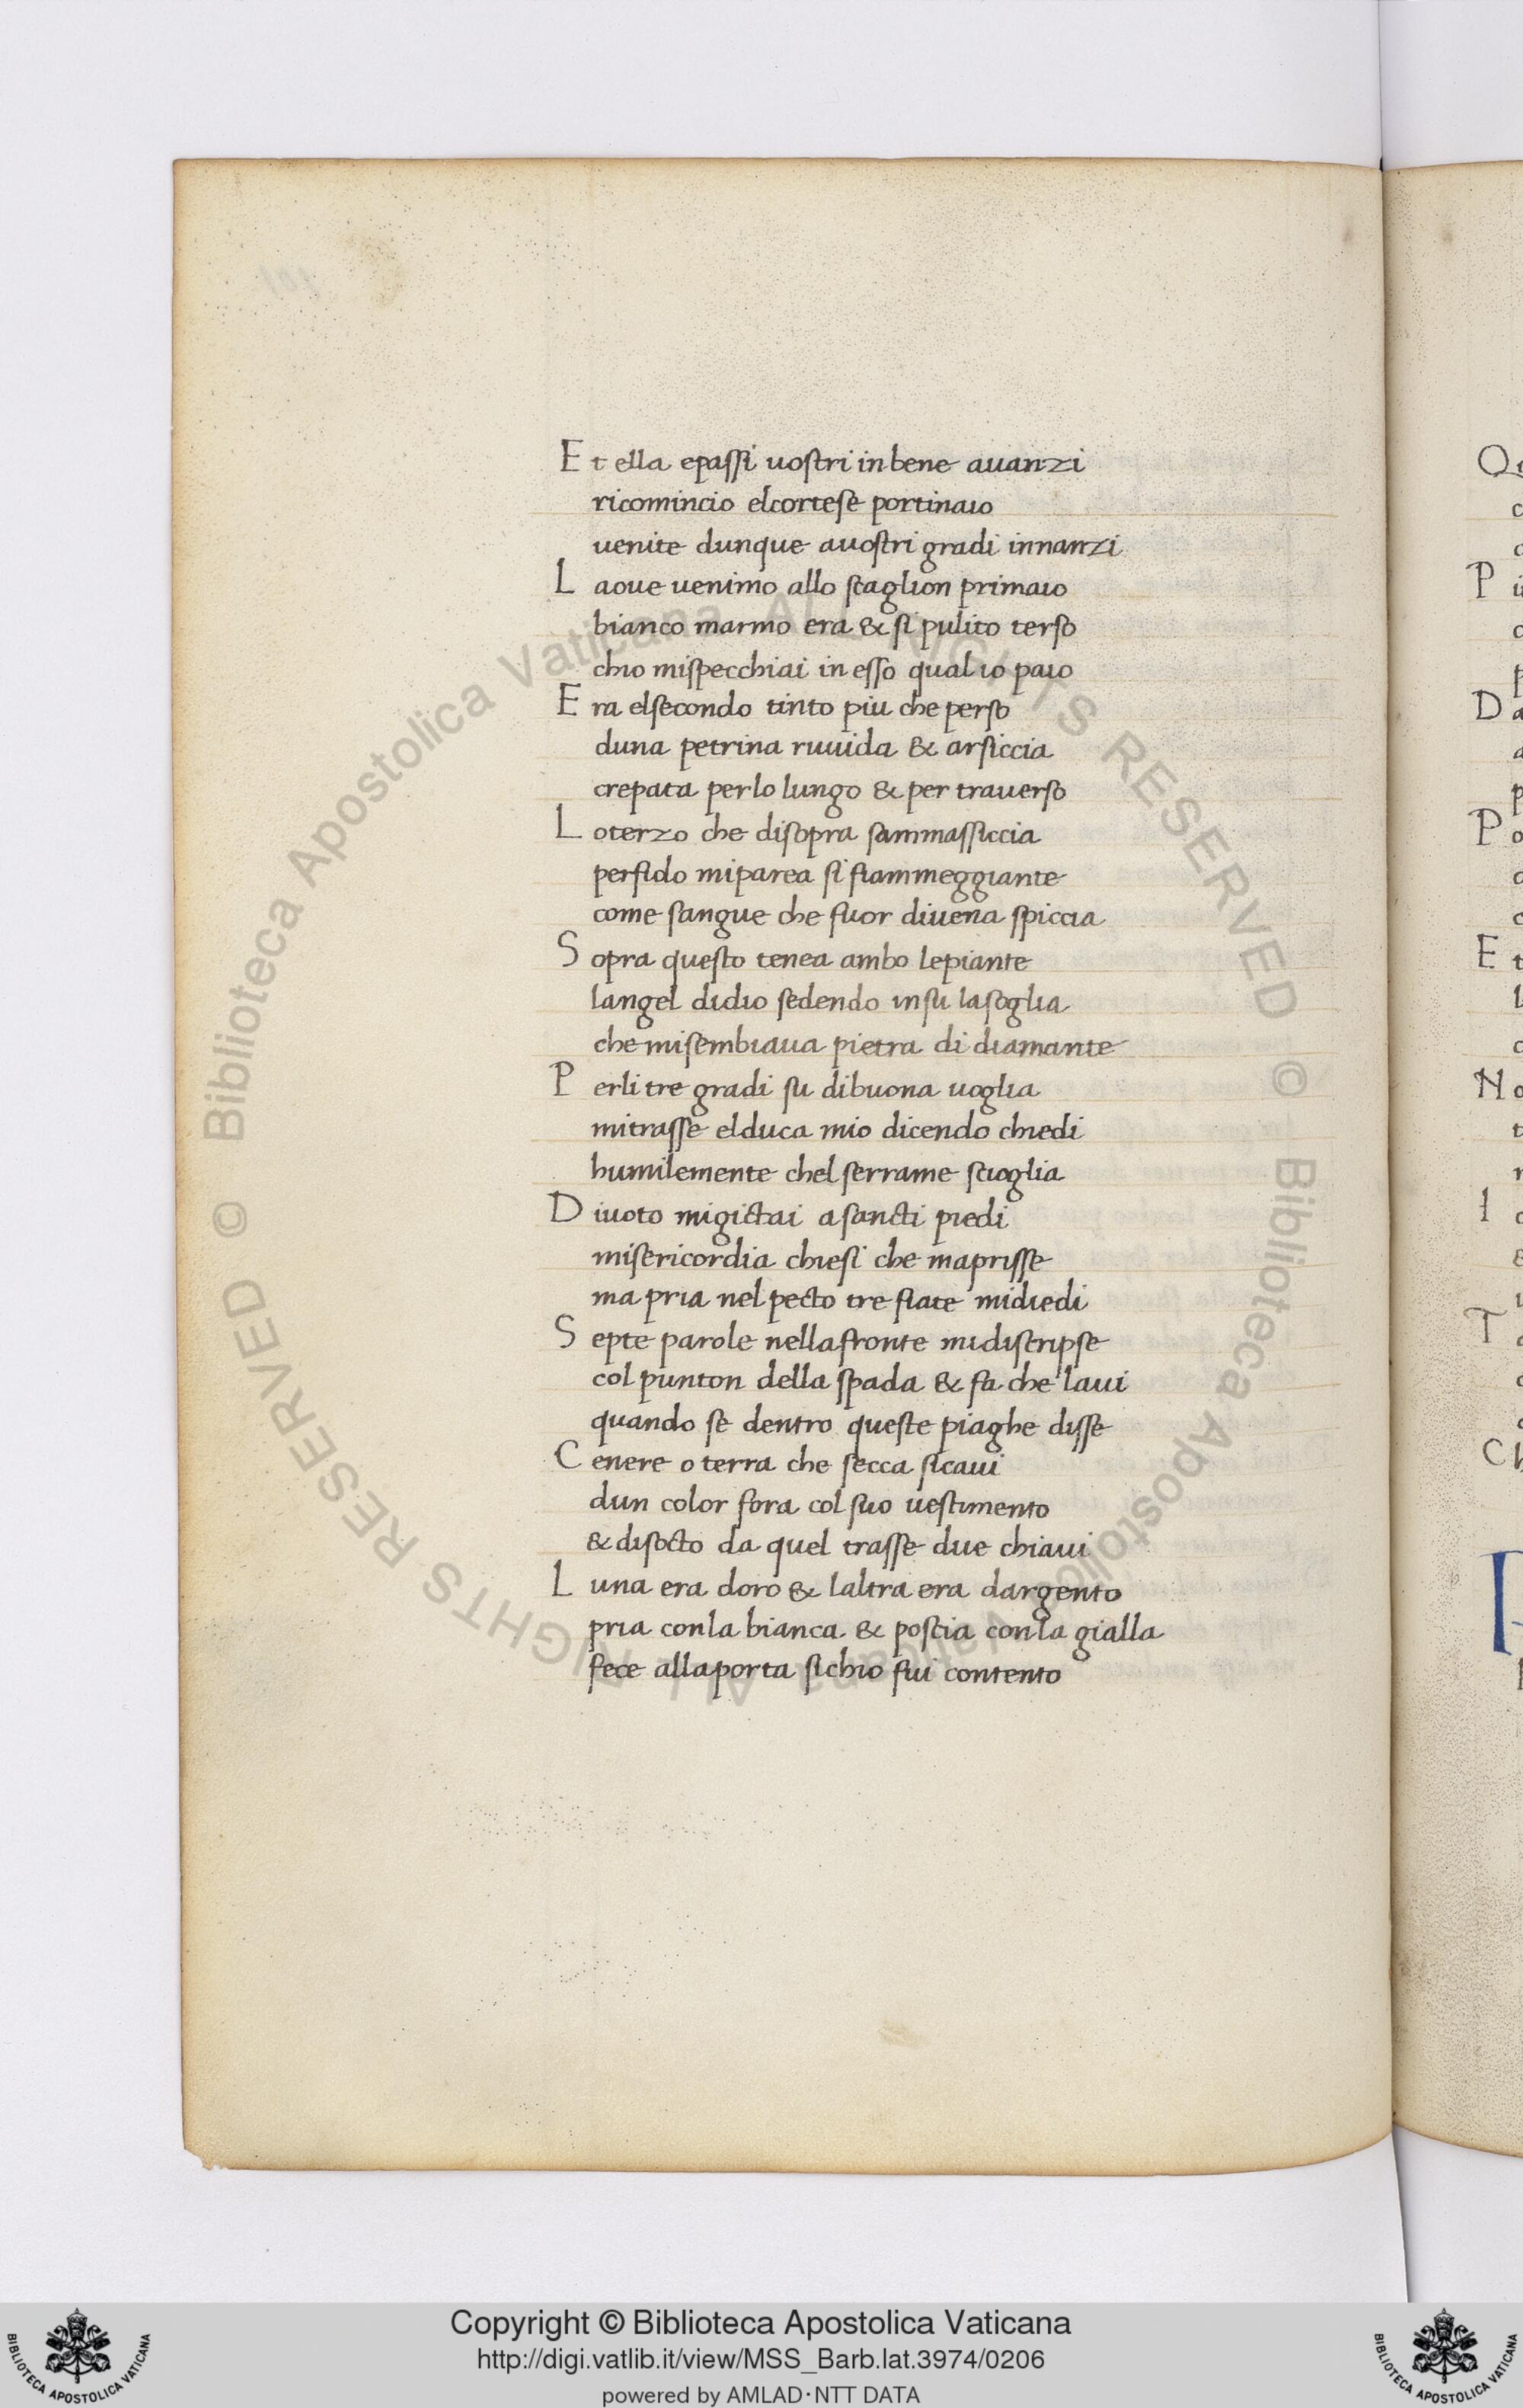 Et ella epassi uostri inbene auanzi
ricomincio elcortese portinaio
uenite dunque auostri gradi innanzi
Laoue uenimo allo scaglion primaio
bianco marmo era & si pulito terso
chio mispecchiai in esso qual io paio
Era elsecondo tinto piu che perso
duna petrina ruuida & arsiccia
crepata perlo lungo & per trauerso
Loterzo che disopra sammassiccia
perfido miparea si fiammeggiante
come sangue che fuor diuena spiccia
Sopra questo tenea ambo lepiante
langel didio sedendo insu lasoglia
che misembiaua pietra di diamante
Perli tre gradi su dibuona uoglia
mitrasse elduca mio dicendo chiedi
humilemente chel serrame scioglia
Diuoto migictai asancti piedi
misericordia chiesi che maprisse
ma pria nel pecto tre fiate midiedi
Septe parole nellafronte midiscripse
col punton della spada & fa che laui
quando se dentro queste piaghe disse
Cenere o terra che secca sicaui
dun color fora col suo uestimento
& disocto da quel trasse due chiaui
Luna era doro & laltra era dargento
pria conla bianca & poscia conla gialla
fece allaporta sichio fui contento
Biblioteca Apostolica Vaticana ALL RIGHTS RESERVED ©
Biblioteca Apostolica Vaticana ALL RIGHTS RESERVED ©
Copyright © Biblioteca Apostolica Vaticana
http://digi.vatlib.it/view/MSS_Barb.lat.3974/0206
powered by AMLAD·NTT DATA
BIBLIOTECA APOSTOLICA VATICANA
BIBLIOTECA APOSTOLICA VATICANA